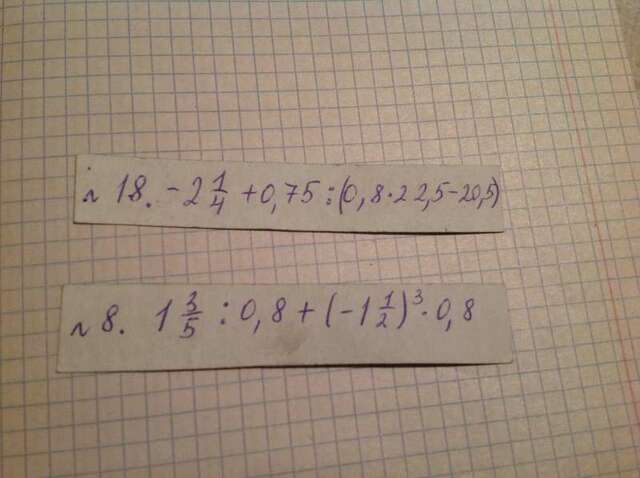 № 18. -2 1/4 + 0,75 : (0,8·22,5-20,5)
№ 8. 1 3/5 : 0,8 + (-1 1/2)³ · 0,8